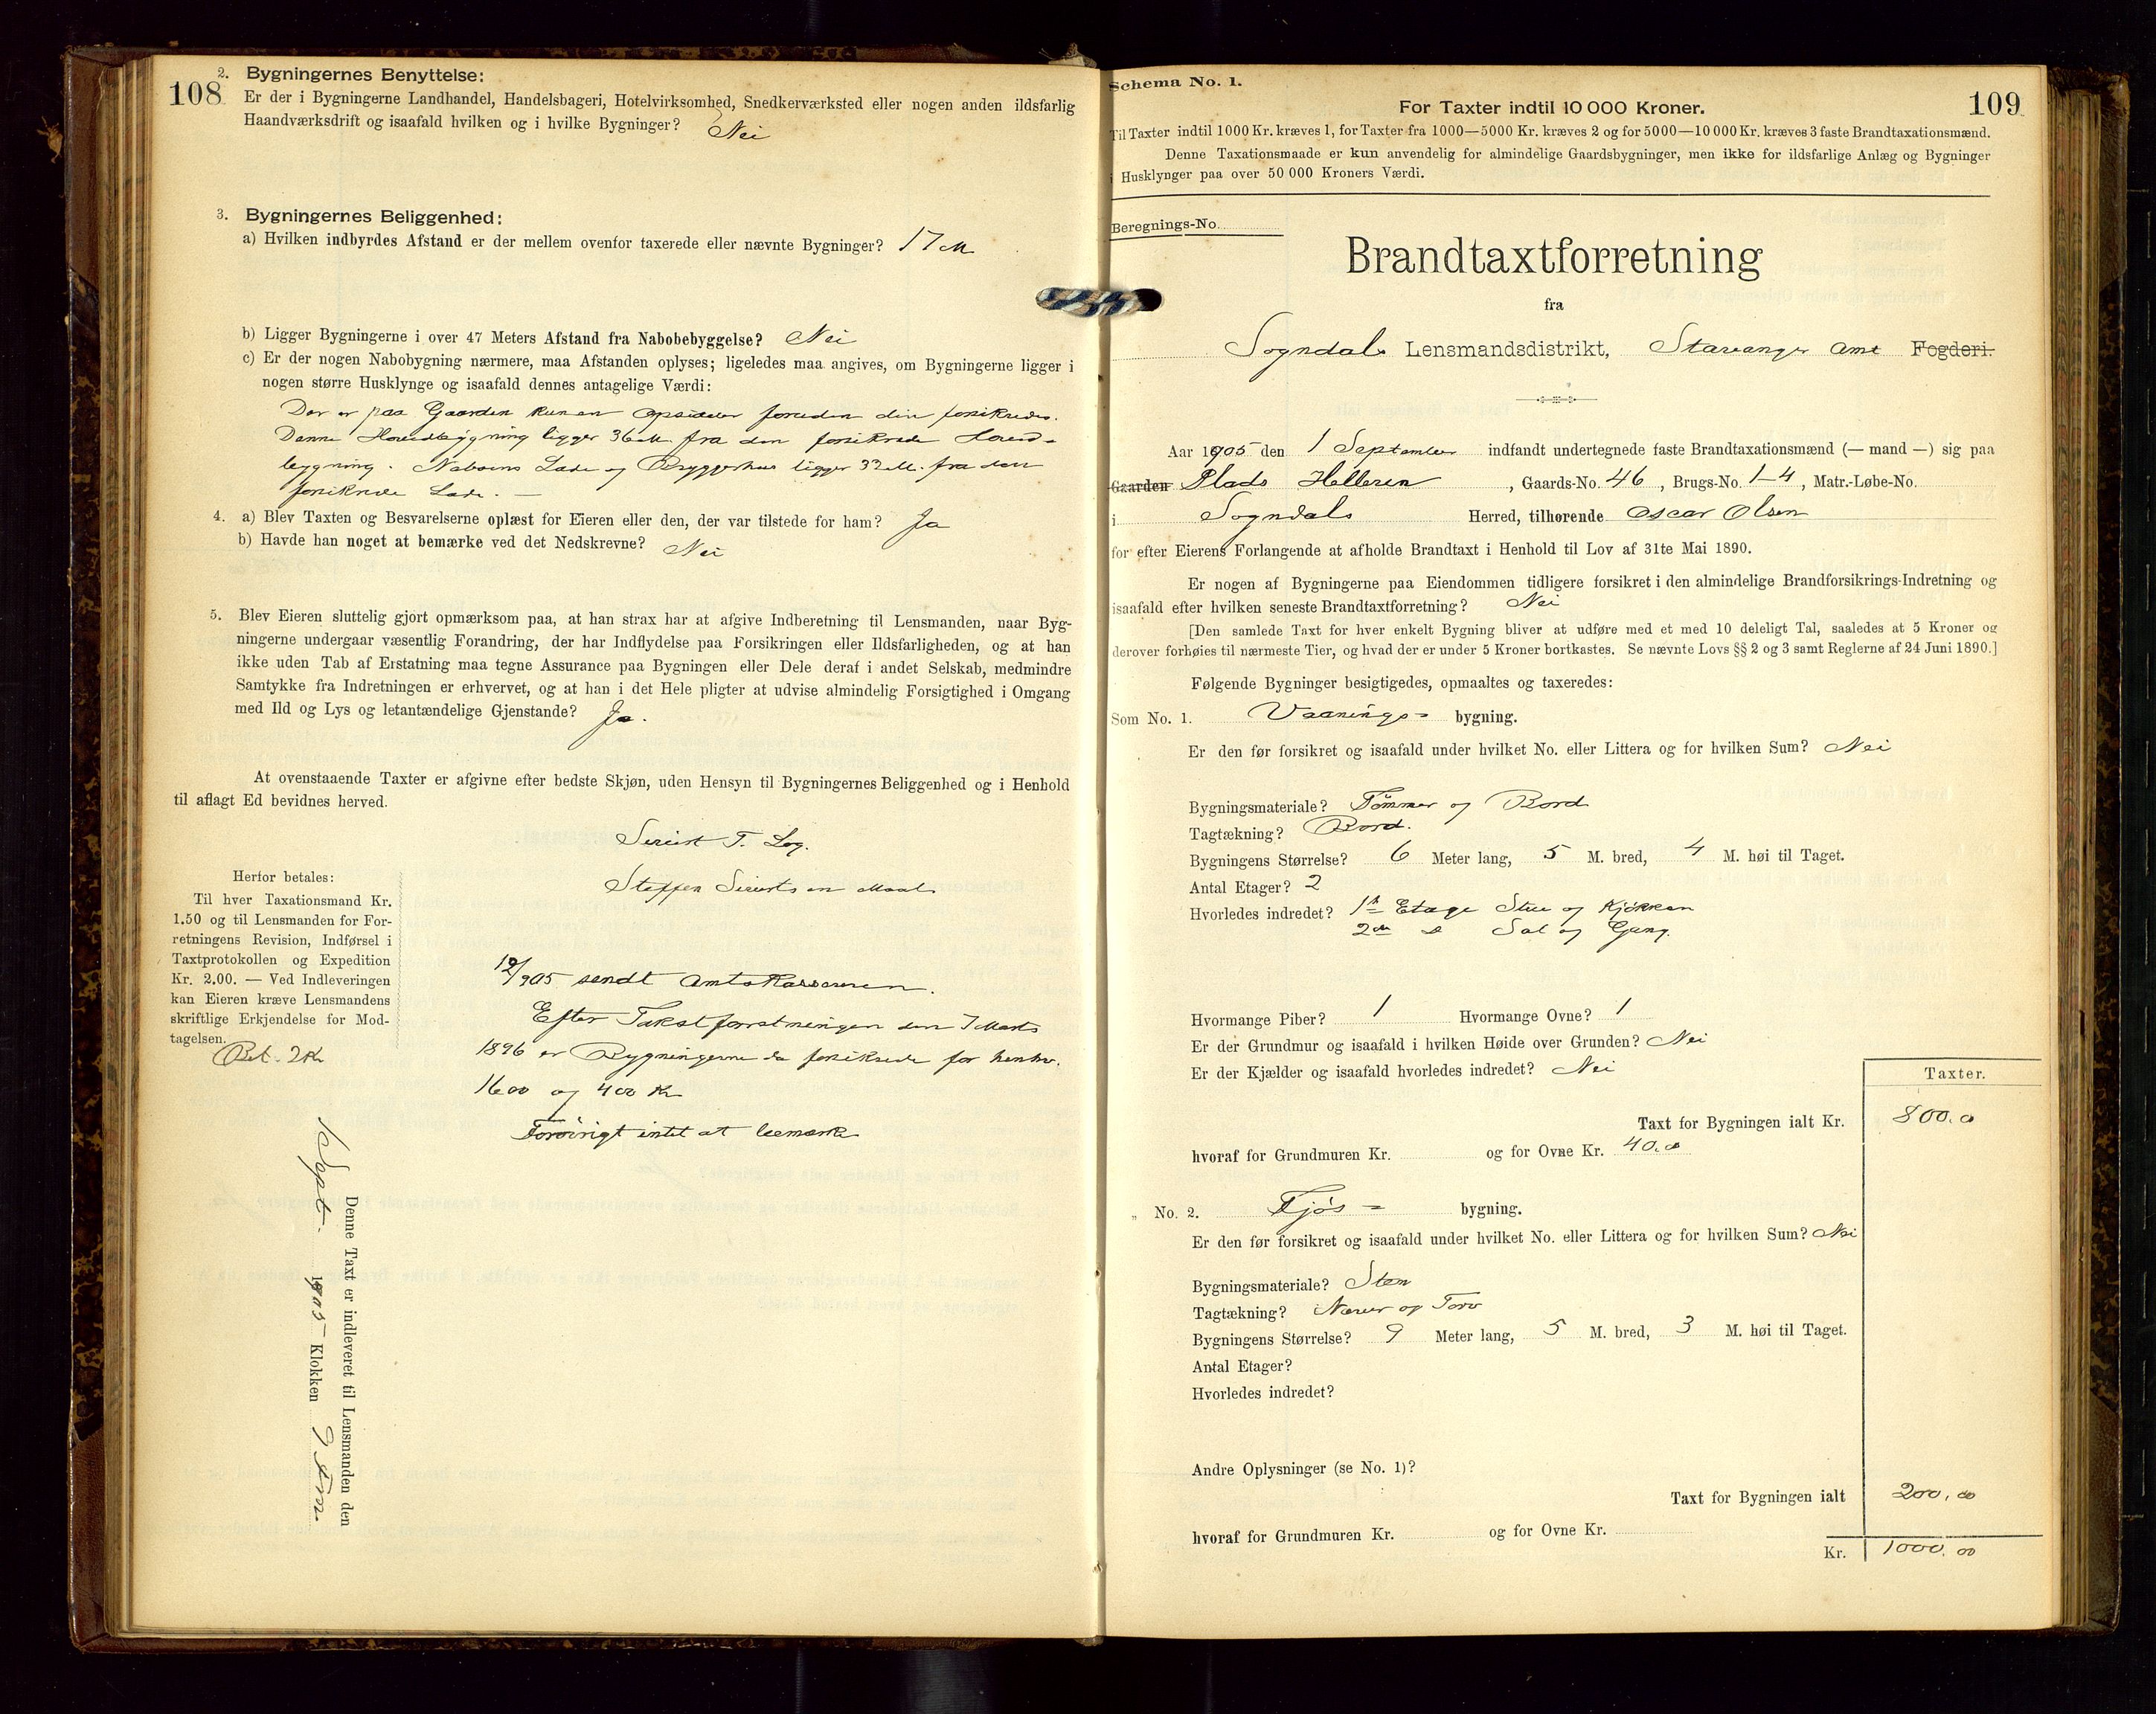 108
2. Bygningernes Benyttelse:
Er der i Bygningerne Landhandel, Handelsbageri, Hotelvirksomhed, Snedkerværksted eller nogen anden ildsfarlig
Haandværksdrift og isaafald hvilken og i hvilke Bygninger? Nei
3. Bygningernes Beliggenhed:
a) Hvilken indbyrdes Afstand er der mellem ovenfor taxerede eller nævnte Bygninger? 17 M
b) Ligger Bygningerne i over 47 Meters Afstand fra Nabobebyggelse? Nei
c) Er der nogen Nabobygning nærmere, maa Afstanden oplyses; ligeledes maa angives, om Bygningerne ligger i
nogen større Husklynge og isaafald dennes antagelige Værdi:
Der er paa Gaarden kun en Opsidder foruden den forsikredes.
Dennes Hovedbygning ligger 36 M. fra den forsikrede Hoved-
bygning. Naboens Lade og Bryggerhus ligger 32 M. fra den
forsikrede Lade. —
4. a) Blev Taxten og Besvarelserne oplæst for Eieren eller den, der var tilstede for ham? Ja
b) Havde han noget at bemærke ved det Nedskrevne? Nei
5. Blev Eieren sluttelig gjort opmærksom paa, at han strax har at afgive Indberetning til Lensmanden, naar Byg-
ningerne undergaar væsentlig Forandring, der har Indflydelse paa Forsikringen eller Ildsfarligheden, og at han
ikke uden Tab af Erstatning maa tegne Assurance paa Bygningen eller Dele deraf i andet Selskab, medmindre
Samtykke fra Indretningen er erhvervet, og at han i det Hele pligter at udvise almindelig Forsigtighed i Omgang
med Ild og Lys og letantændelige Gjenstande? Ja.
At ovenstaaende Taxter er afgivne efter bedste Skjøn, uden Hensyn til Bygningernes Beliggenhed og i Henhold
til aflagt Ed bevidnes herved.
Sivert T. Log.
Steffen Sivertsen Maal
Herfor betales:
Til hver Taxationsmand Kr.
1.50 og til Lensmanden for For-
retningens Revision, Indførsel i
Taxtprotokollen og Expedition
Kr. 2.00. — Ved Indleveringen
kan Eieren kræve Lensmandens
skriftlige Erkjendelse for Mod-
tagelsen.
Bet. 2 Kr
905 sendt Amtskassereren.
Efter Takstforretningen den 7 Marts
1896 er Bygningerne da forsikrede for henhv.
1600 og 400 Kr
Forøvrigt intet at bemærke
Denne Taxt er indleveret til Lensmanden den
1 Sept. 1905 Klokken 9 Fm.
109
Schema No. 1.
For Taxter indtil 10 000 Kroner.
Til Taxter indtil 1000 Kr. kræves 1, for Taxter fra 1000—5000 Kr. kræves 2 og for 5000—10 000 Kr. kræves 3 faste Brandtaxationsmænd.
Denne Taxationsmaade er kun anvendelig for almindelige Gaardsbygninger, men ikke for ildsfarlige Anlæg og Bygninger
i Husklynger paa over 50 000 Kroners Værdi.
Beregnings-No.
Brandtaxtforretning
fra
Sogndals Lensmandsdistrikt, Stavanger Amt Fogderi.
Aar 1905 den 1 September indfandt undertegnede faste Brandtaxationsmænd (— mand —) sig paa
Gaarden Plads Helleren, Gaards-No. 46, Brugs-No. 1-4, Matr.-Løbe-No.
i Sogndals Herred, tilhørende Oscar Olsen
for efter Eierens Forlangende at afholde Brandtaxt i Henhold til Lov af 31te Mai 1890.
Er nogen af Bygningerne paa Eiendommen tidligere forsikret i den almindelige Brandforsikrings-Indretning og
isaafald efter hvilken seneste Brandtaxtforretning? Nei
[Den samlede Taxt for hver enkelt Bygning bliver at udføre med et med 10 deleligt Tal, saaledes at 5 Kroner og
derover forhøies til nærmeste Tier, og hvad der er under 5 Kroner bortkastes. Se nævnte Lovs §§ 2 og 3 samt Reglerne af 24 Juni 1890.]
Følgende Bygninger besigtigedes, opmaaltes og taxeredes:
Som No. 1. Vaanings- bygning.
Er den før forsikret og isaafald under hvilket No. eller Littera og for hvilken Sum? Nei
Bygningsmateriale? Tømmer og Bord
Tagtækning? Bord.
Bygningens Størrelse? 6 Meter lang, 5 M. bred, 4 M. høi til Taget.
Antal Etager? 2
Hvorledes indredet? 1ste Etage Stue og Kjøkken
2den D Sal og Gang.
Hvormange Piber? 1 Hvormange Ovne? 1
Er der Grundmur og isaafald i hvilken Høide over Grunden? Nei
Er der Kjælder og isaafald hvorledes indredet? Nei
Taxter.
Taxt for Bygningen ialt Kr. 800.00
hvoraf for Grundmuren Kr. og for Ovne Kr. 40.00
„ No. 2. Fjøs- bygning.
Er den før forsikret og isaafald under hvilket No. eller Littera og for hvilken Sum? Nei
Bygningsmateriale? Sten
Tagtækning? Næver og Torv
Bygningens Størrelse? 9 Meter lang, 5 M. bred, 3 M. høi til Taget.
Antal Etager?
Hvorledes indredet?
Andre Oplysninger (se No. 1)?
Taxt for Bygningen ialt 200,00
hvoraf for Grundmuren Kr. og for Ovne Kr.
Kr. 1000.00